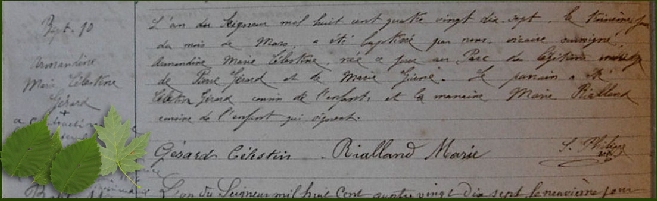 Bpt. 10
Armandine
Marie Célestine
Gérard
L'an du Seigneur mil huit cent quatre vingt dix sept, le troisième jour
du mois de Mars, a été baptisée par nous vicaire soussigné,
Armandine Marie Célestine, née ce jour au Parc du légitime mariage
de Pierre Gérard et de Marie. Le parrain a été
Célestin Gérard cousin de l'enfant, et la marraine Marie Rialland
cousine de l'enfant qui signent.
Gérard Célestin. Rialland Marie
L'an du Seigneur mil huit Cent quatre vingt dix sept le neuvième jour